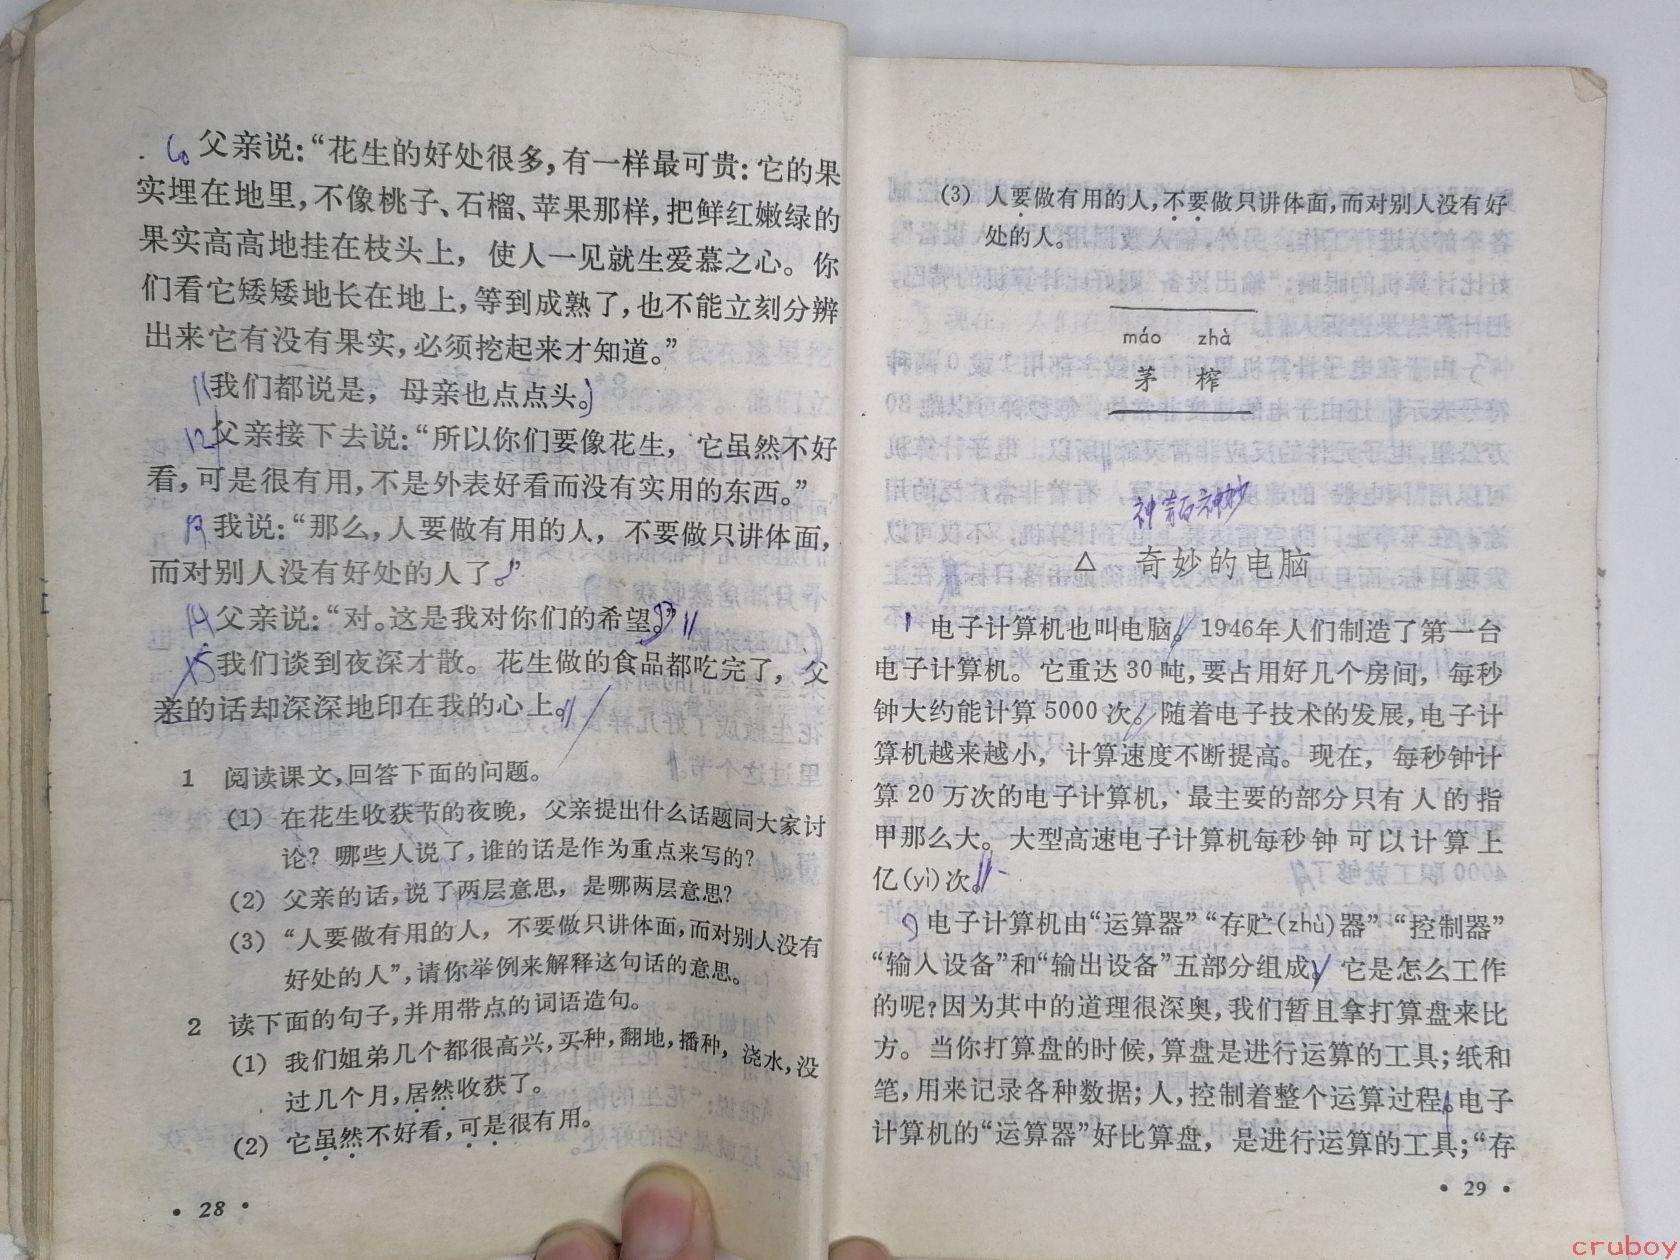 10 父亲说：“花生的好处很多，有一样最可贵：它的果
实埋在地里，不像桃子、石榴、苹果那样，把鲜红嫩绿的
果实高高地挂在枝头上，使人一见就生爱慕之心。你
们看它矮矮地长在地上，等到成熟了，也不能立刻分辨
出来它有没有果实，必须挖起来才知道。”
11 我们都说是，母亲也点点头。
12 父亲接下去说：“所以你们要像花生，它虽然不好
看，可是很有用，不是外表好看而没有实用的东西。”
13 我说：“那么，人要做有用的人，不要做只讲体面，
而对别人没有好处的人了。”
14 父亲说：“对。这是我对你们的希望。”
15 我们谈到夜深才散。花生做的食品都吃完了，父
亲的话却深深地印在我的心上。
1 阅读课文，回答下面的问题。
(1) 在花生收获节的夜晚，父亲提出什么话题同大家讨
论？哪些人说了，谁的话是作为重点来写的？
(2) 父亲的话，说了两层意思，是哪两层意思？
(3) “人要做有用的人，不要做只讲体面，而对别人没有
好处的人”，请你举例来解释这句话的意思。
2 读下面的句子，并用带点的词语造句。
(1) 我们姐弟几个都很高兴，买种，翻地，播种，浇水，没
过几个月，居然收获了。
(2) 它虽然不好看，可是很有用。
· 28 ·
(3) 人要做有用的人，不要做只讲体面，而对别人没有好
处的人。
máo zhà
茅 榨
△ 奇妙的电脑
1 电子计算机也叫电脑。1946年人们制造了第一台
电子计算机。它重达30吨，要占用好几个房间，每秒
钟大约能计算5000次。随着电子技术的发展，电子计
算机越来越小，计算速度不断提高。现在，每秒钟计
算20万次的电子计算机，最主要的部分只有人的指
甲那么大。大型高速电子计算机每秒钟可以计算上
亿(yì)次。
2 电子计算机由“运算器”“存贮(zhù)器”“控制器”
“输入设备”和“输出设备”五部分组成。它是怎么工作
的呢？因为其中的道理很深奥，我们暂且拿打算盘来比
方。当你打算盘的时候，算盘是进行运算的工具；纸和
笔，用来记录各种数据；人，控制着整个运算过程。电子
计算机的“运算器”好比算盘，是进行运算的工具；“存
· 29 ·
cruboy